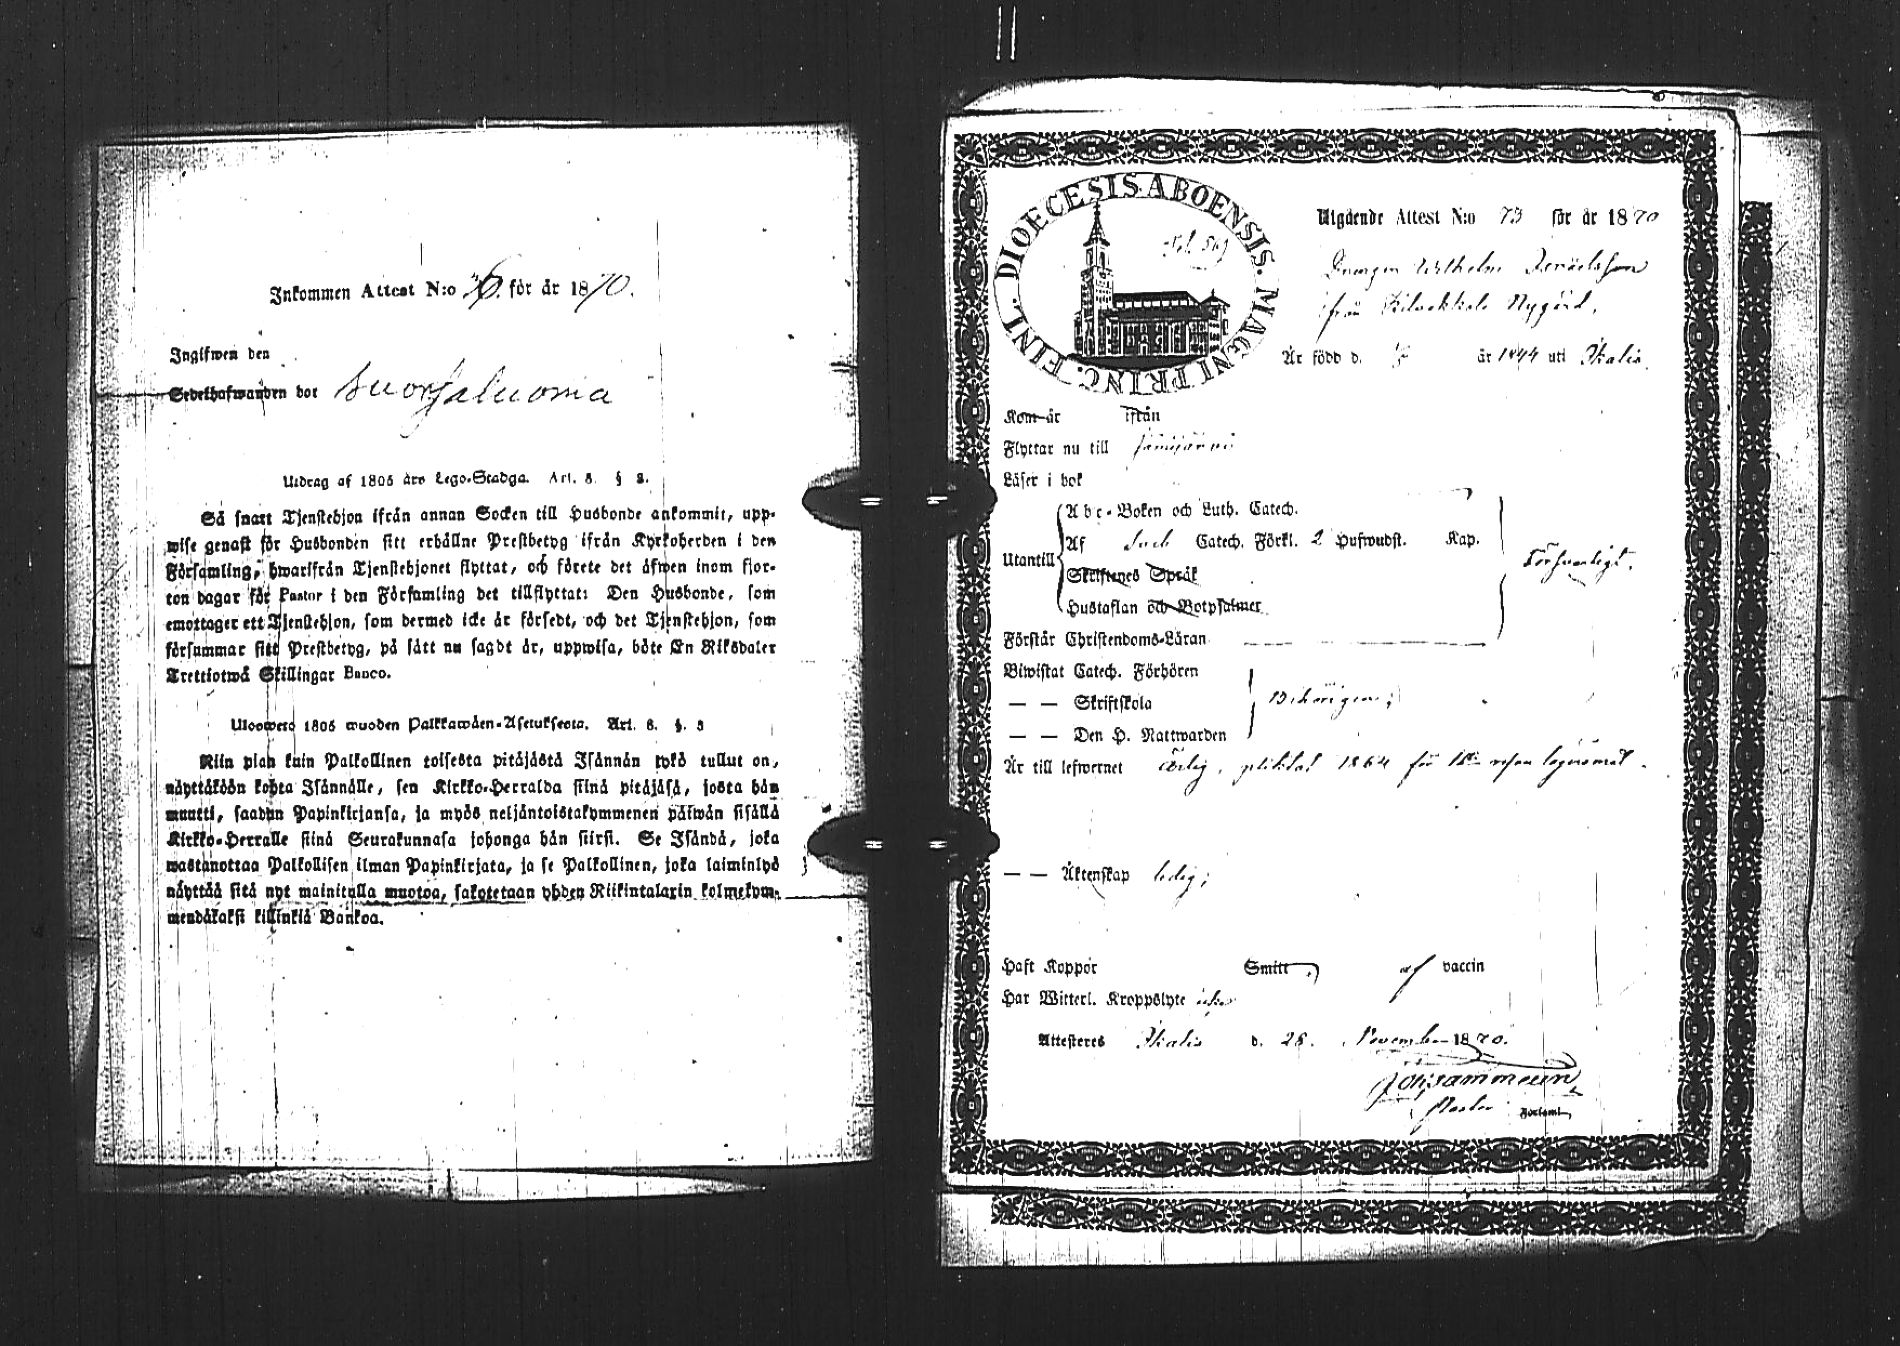 Inkommen Attest N:o 36. för år 1870.
Ingifwen den
Sedelhafwanden bor Suorsaluoma
Utdrag af 1805 års Lego-Stadga. Art. 8. § 3.
Så snart Tjenstehjon ifrån annan Socken till Husbonde ankommit, upp-
wise genast för Husbonden sitt erhållne Prestbetyg ifrån Kyrkoherden i den
Församling, hwarifrån Tjenstehjonet flyttat, och förete det äfwen inom fjor-
ton dagar för Pastor i den Församling det tillflyttat: Den Husbonde, som
emottager ett Tjenstehjon, som dermed icke är försedt, och det Tjenstehjon, som
försummar sitt Prestbetyg, på sätt nu sagdt är, uppwisa, böte En Riksdaler
Trettiotwå Skillingar Banco.
Ulosweto 1805 wuoden Palkkawäen-Asetuksesta. Art. 8. §. 3
Niin pian kuin Palkollinen toisesta pitäjästä Isännän tykö tullut on,
näyttäköön kohta Isännälle, sen Kirkko-Herralda siinä pitäjäsä, josta hän
muutti, saadun Papinkirjansa, ja myös neljäntoistakymmenen päiwän sisällä
Kirkko-Herralle siinä Seurakunnasa johonga hän siirsi. Se Isändä, joka
wastanottaa Palkollisen ilman Papinkirjata, ja se Palkollinen, joka laiminlyö
näyttää sitä nyt mainitulla muotoa, sakotetaan yhden Riikintalarin kolmekym-
mendäkaksi killinkiä Bankoa.
DIOECESIS ABOENSIS. MAGNI PRINC. FINL.
Pol. 569
Utgående Attest N:o 73 för år 1870
Drengen Wilhelm Israelsson
från Kilwakkala Nygård,
Är född d. år 1844 uti Ikalis.
Kom år ifrån
Flyttar nu till Jämijärvi
Läser i bok
Utantill
Abc-Boken och Luth. Catech.
Af Catech. Förkl. 2 Hufwudst. Kap.
Skriftenes Språk
Hustaflan och Botpsalmer
Försvarligt.
Förstår Christendoms-Läran
Biwistat Catech. Förhören
— — Skriftskola
— — Den H. Nattwarden
Behörigen;
Är till lefwernet Ärlig, pliktat 1864 för 1sta resan lägersmål.
— — Äktenskap ledig;
Haft Koppor Smitt, af vaccin
Har Witterl. Kroppslyte icke
Attesteres Ikalis d. 28. November 1870.
Pastor